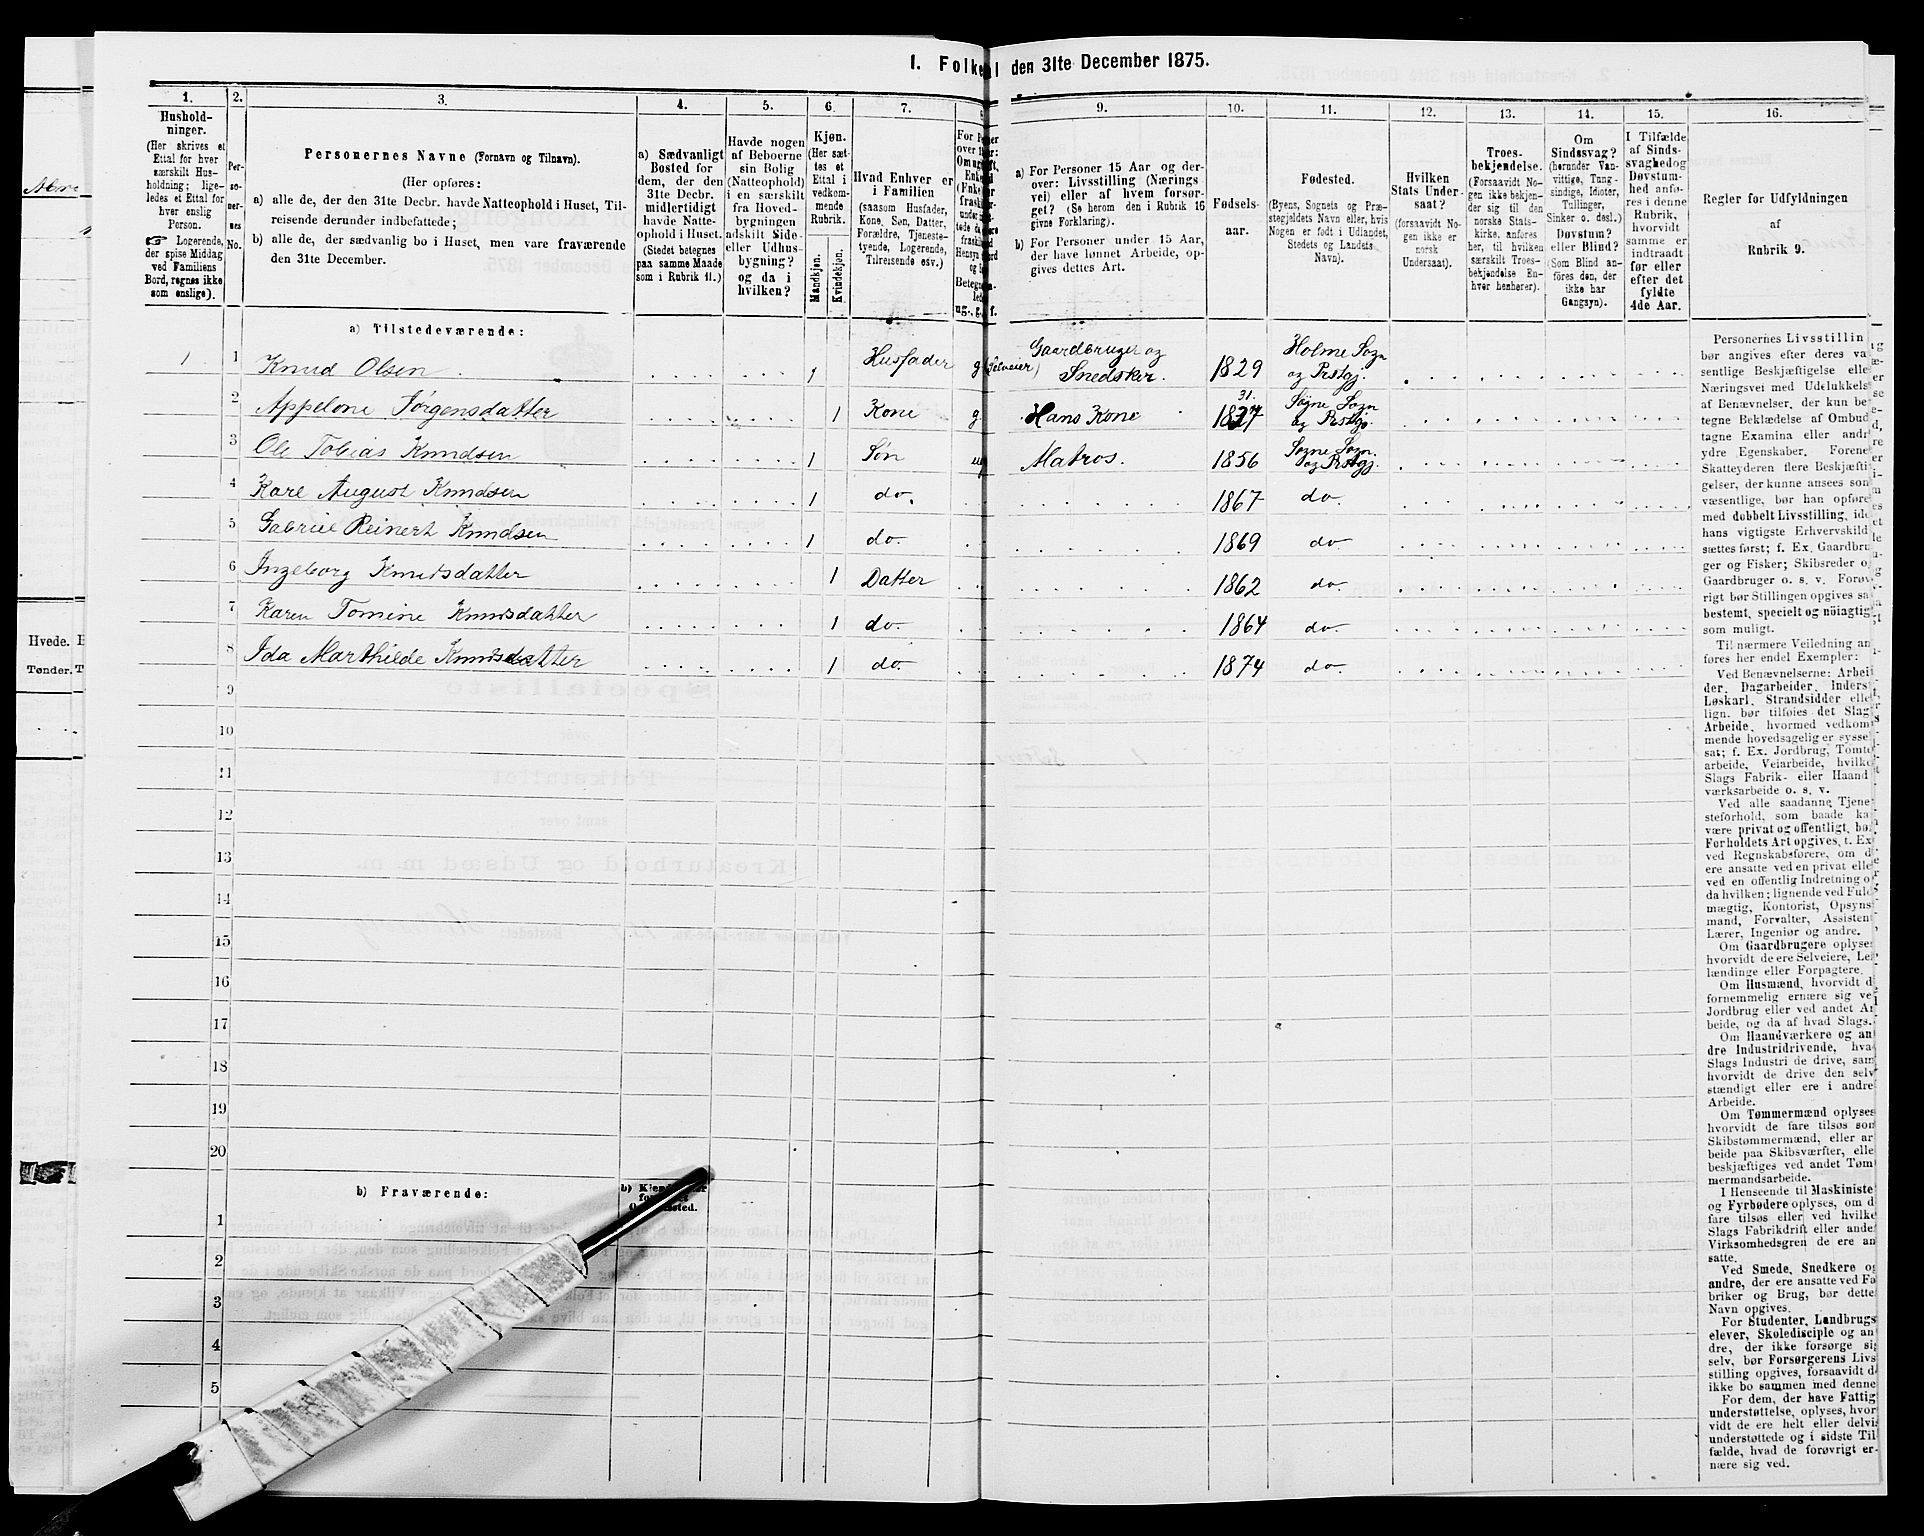 1. Folke l den 31te December 1875.
1.
Hushold-
ninger.
(Her skrives et
Ettal for hver
særskilt Hus-
holdning; lige-
ledes et Ettal for
hver enslig
Person.
☞ Logerende,
der spise Middag
ved Familiens
Bord, regnes ikke
som enslige).
2.
Per-
so-
ner-
nes
No.
3.
Personernes Navne (Fornavn og Tilnavn).
(Her opføres:
a) alle de, der den 31te Decbr. havde Natteophold i Huset, Til-
reisende derunder indbefattede;
b) alle de, der sædvanlig bo i Huset, men vare fraværende
den 31te December.
4.
a) Sædvanligt
Bosted for
dem, der den
31te Decbr.
midlertidigt
havde Natte-
ophold i Huset.
(Stedet betegnes
paa samme Maade
som i Rubrik 11.)
5.
Havde nogen
af Beboerne
sin Bolig
(Natteophold)
i en særskilt
fra Hoved-
bygningen
adskilt Side-
eller Udhus-
bygning?
og da i
hvilken?
6.
Kjøn.
(Her sæt-
tes et
Ettal i
vedkom-
mende
Rubrik.
Mandkjøn.
Kvindekjøn.
7.
Hvad Enhver er
i Familien
(saasom Husfader,
Kone, Søn, Datter,
Forældre, Tjeneste-
tyende, Logerende,
Tilreisende osv.)
9.
a) For Personer 15 Aar og der-
over: Livsstilling (Nærings-
vei) eller af hvem forsør-
get? (Se herom den i Rubrik 16
givne Forklaring).
b) For Personer under 15 Aar,
der have lønnet Arbeide, op-
gives dettes Art.
10.
Fødsels-
aar.
11.
Fødested.
(Byens, Sognets og Præ-
stegjeldets Navn eller, hvis
Nogen er født i Udlandet,
Stedets og Landets
Navn).
12.
Hvilken
Stats Under-
saat?
(forsaavidt No-
gen ikke er
norsk
Undersaat).
13.
Troes-
bekjendelse.
(Forsaavidt No-
gen ikke bekjen-
der sig til den
norske Stats-
kirke, anføres
her, til hvilken
særskilt Troes-
bekjendelse En-
hver henhører).
14.
Om
Sindssvag?
(herunder Van-
vittige, Tung-
sindige, Idioter,
Tullinger,
Sinker o. desl.)
Døvstum?
eller Blind?
(Som Blind an-
føres den, der
ikke har
Gangsyn).
15.
I Tilfælde
af Sinds-
svaghed og
Døvstum-
hed anfø-
res i denne
Rubrik,
hvorvidt
samme er
indtraadt
før eller
efter det
fyldte
4de Aar.
16.
Regler for Udfyldningen
af
Rubrik 9.
a) Tilstedeværende:
1 1 Knud Olsen 1 Husfader g (Selveier) Gaardbruger og
Snedsker. 1829 Holme Sogn
og Prstgj.
2 Appelone Jørgensdatter 1 Kone g. Hans Kone 31. 1827 Søgne Sogn
og Prstgj.
3 Ole Tobias Knudsen 1 Søn ug Matros. 1856 Søgne Sogn.
og Prstgj.
4 Karl August Knudsen 1 do. 1867 do
5 Gabriel Reinert Knudsen 1 do. 1869 do
6 Ingeborg Knudsdatter 1 Datter 1862 do
7 Karen Tomine Knudsdatter 1 do. 1864 do
8 Ida Marthilde Knudsdatter 1 do. 1874 do
9
10
11
12
13
14
15
16
17
18
19
20
b) Fraværende:
1
2
3
4
5
Personernes Livsstillin
bør angives efter deres va
sentlige Beskjæftigelse elle
Næringsvei med Udelukkels
af Benævnelser, der kun be
tegne Beklædelse af Ombud
tagne Examina eller andr
ydre Egenskaber. Forene
Skatteyderen flere Beskjæfti
gelser, der kunne ansees som
væsentlige, bør han opføre
med dobbelt Livsstilling, ide
hans vigtigste Erhvervskild
sættes først; f. Ex. Gaardbru
ger og Fisker; Skibsreder o
Gaardbruger o. s. v. Forøv
rigt bør Stillingen opgives sa
bestemt, specielt og nöiagtig
som muligt.
Til nærmere Veiledning an
føres her endel Exempler:
Ved Benævnelserne: Arbei
der, Dagarbeider, Inders
Løskarl, Strandsidder elle
lign. bør tilføies det Slag
Arbeide, hvormed vedkom
mende hovedsagelig er sysse
sat; f. Ex. Jordbrug, Tomte
arbeide, Veiarbeide, hvilke
Slags Fabrik- eller Haand
værksarbeide o. s. v.
Ved alle saadanne Tjene
steforhold, som baade ka
være privat og offentligt, bø
Forholdets Art opgives, t. Ex
ved Regnskabsførere, om d
ere ansatte ved en privat elle
ved en offentlig Indretning o
da hvilken; lignende ved Fuld
mægtig, Kontorist, Opsyns
mand, Forvalter, Assisten
Lærer, Ingeniør og andre.
Om Gaardbrugere oplyse
hvorvidt de ere Selveiere, Lei
lændinge eller Forpagtere.
Om Husmænd, hvorvidt d
fornemmelig ernære sig ve
Jordbrug eller ved andet Ar
beide, og da af hvad Slags.
Om Haandværkere og an
dre Industridrivende, hva
Slags Industri de drive, sam
hvorvidt de drive den selv
stændigt eller ere i andre
Arbeide.
Om Tømmermænd oplyses
hvorvidt de fare tilsøs som
Skibstømmermænd, eller ar
beide paa Skibsværfter, elle
beskjæftiges ved andet Tøm
mermandsarbeide.
I Henseende til Maskiniste
og Fyrbødere oplyses, om d
fare tilsøs eller ved hvilke
Slags Fabrikdrift eller ande
Virksomhedsgren de ere an
satte.
Ved Smede, Snedkere og
andre, der ere ansatte ved Fa
briker og Brug, bør dette
Navn opgives.
For Studenter, Landbrugs
elever, Skoledisciple og an
dre, der ikke forsørge sig
selv, bør Forsørgerens Livs
stilling opgives, forsaavidt d
ikke bo sammen med denne
For dem, der have Fattig
understøttelse, oplyses, hvor
vidt de ere helt eller delvi
understøttede og i sidste Til
fælde, hvad de forøvrigt er-
nære sig ved.
Hvede.
Tønder.